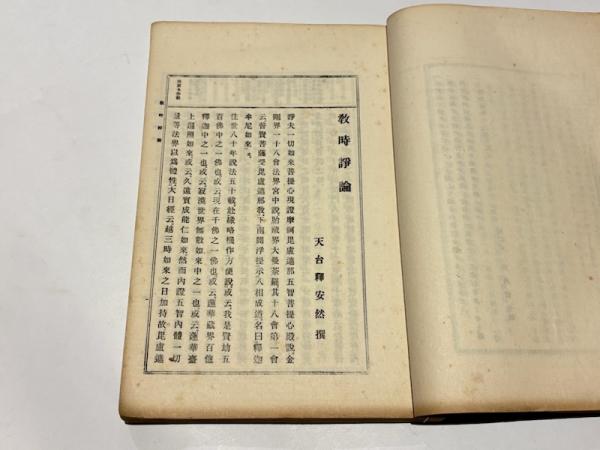 教時諍論
天台釋安然撰
諍夫一切如來菩提心現證摩訶毘盧遮那五智菩提心殿說金
剛界一十八會法界宮中說胎藏界大曼荼羅其十八會第一會
云普賢菩薩受毘盧遮那敎下南閻浮提示八相成道名曰釋迦
牟尼如來
住世八十年說法五十載赴緣略機作方便說或云我是賢劫五
百佛中之一佛也或云現在千佛之一佛也或云蓮華藏界百億
釋迦中之一也或云寂漠世界無數如來中之一也或云蓮華臺
上遮那如來或云久遠實成能仁如來然而內證五智內體一切
量等法界以爲體性大日經云越三時如來之日加持故毘盧遮